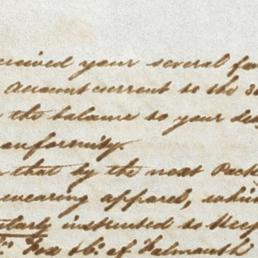 received your several fa
Account current to the 30
the balance to your de
conformity.
that by the next Pack
wearing apparel, whic
instructed to keep
Fox & Co. of Falmouth